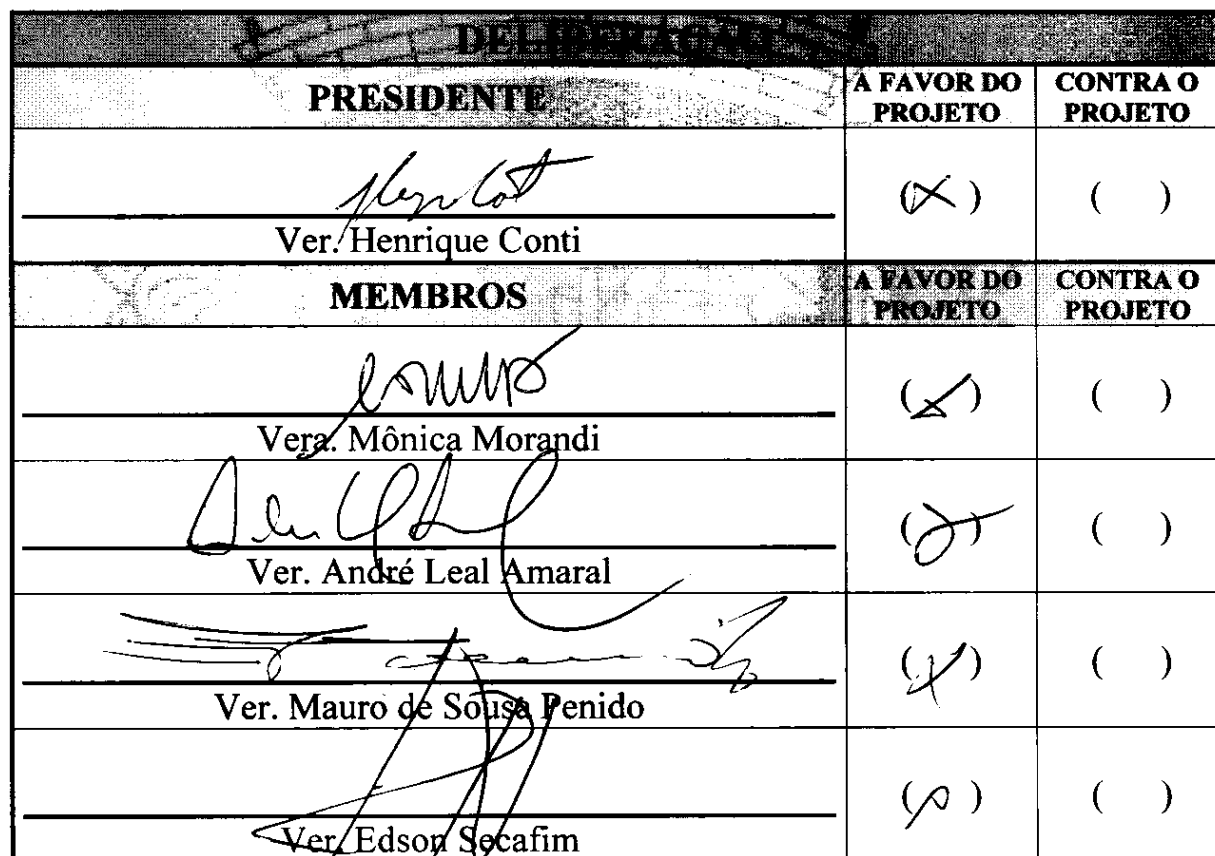 DELIBERAÇÃO
PRESIDENTE A FAVOR DO PROJETO CONTRA O PROJETO
( X ) ( )
Ver. Henrique Conti
MEMBROS A FAVOR DO PROJETO CONTRA O PROJETO
( X ) ( )
Vera. Mônica Morandi
( ) ( )
Ver. André Leal Amaral
( X ) ( )
Ver. Mauro de Sousa Penido
( ) ( )
Ver. Edson Secafim